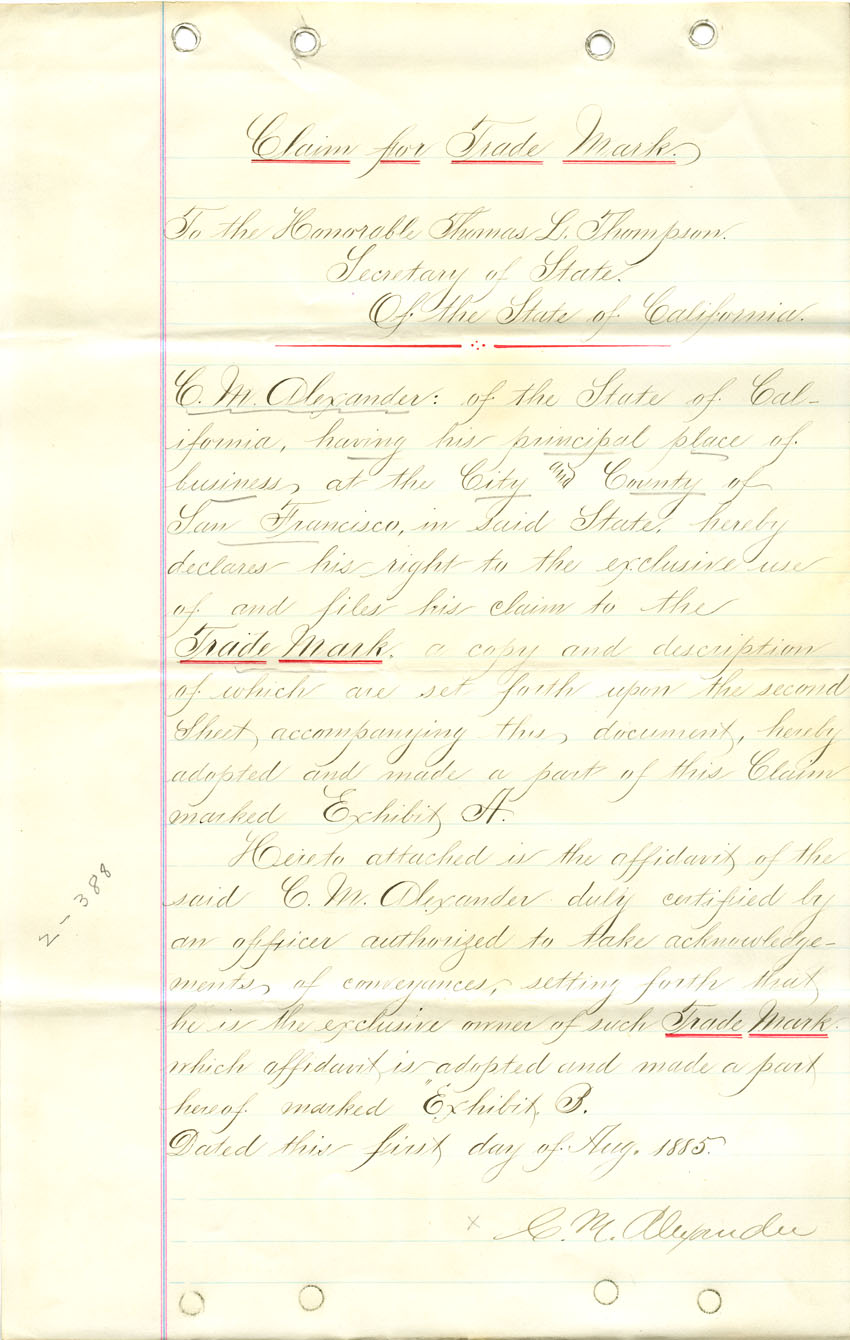 Claim for Trade Mark.
To the Honorable Thomas L. Thompson.
Secretary of State.
Of the State of California.
C. M. Alexander: of the State of Cal-
ifornia, having his principal place of
business, at the City and County of
San Francisco, in said State, hereby
declares his right to the exclusive use
of and files his claim to the
Trade Mark, a copy and description
of which are set forth upon the second
Sheet, accompanying this, document, hereby
adopted and made a part of this Claim
marked Exhibit A.
Hereto attached is the affidavit of the
said C. M. Alexander duly certified by
an officer authorized to take acknowledge-
ments, of conveyances, setting forth that
he is the exclusive owner of such Trade Mark.
which affidavit is adopted and made a part
hereof. marked "Exhibit B.
Dated this first day of Aug. 1885.
x C. M. Alexander
2-388